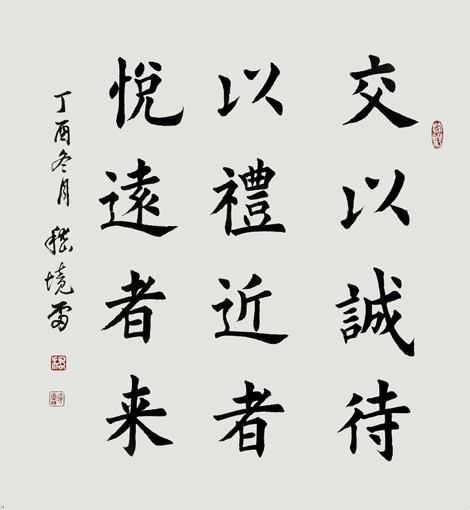 交以誠待
以禮近者
悅遠者来
丁酉冬月嵇境雷